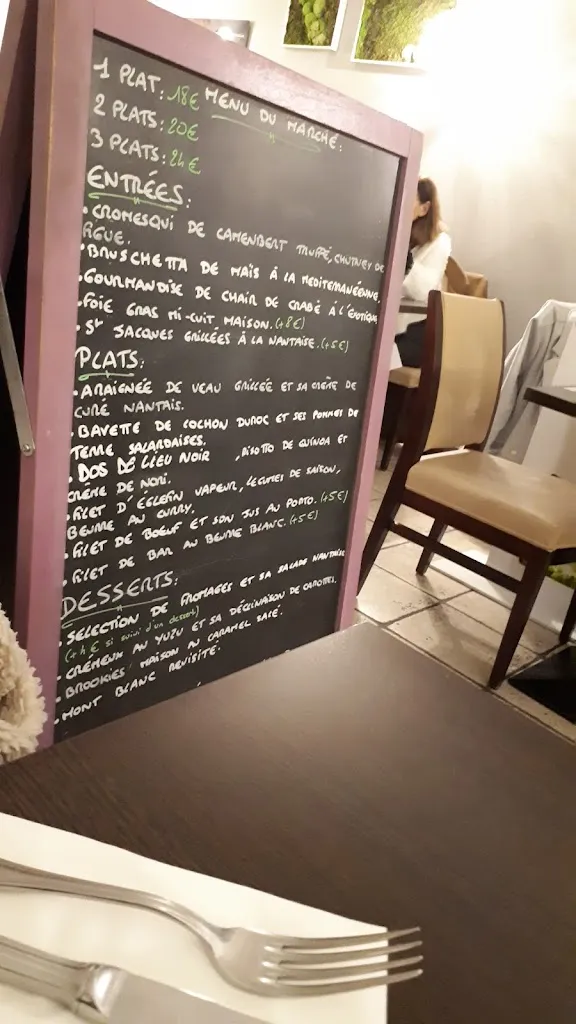 MENU DU MARCHÉ:
1 PLAT: 18€
2 PLATS: 20€
3 PLATS: 24€
ENTRÉES:
• CROMESQUI DE CAMENBERT TRUFFÉ, CHUTNEY DE
FIGUE.
• BRUSCHETTA DE MAÏS À LA MEDITERANÉENNE.
• GOURMANDISE DE CHAIR DE CRABE À L'EXOTIQUE
• FOIE GRAS MI-CUIT MAISON. (+8€)
• St JACQUES GRILLÉES À LA NANTAISE. (+5€)
PLATS:
• ARAIGNÉE DE VEAU GRILLÉE ET SA CRÈME DE
CURÉ NANTAIS.
• BAVETTE DE COCHON DUROC ET SES POMMES DE
TERRE SALARDAISES.
• DOS DE LIEU NOIR , RISOTTO DE QUINOA ET
CRÈME DE NORI.
• FILET D'ÉGLEFIN VAPEUR, LEGUMES DE SAISON,
BEURRE AU CURRY.
• FILET DE BOEUF ET SON JUS AU PORTO. (+5€)
• FILET DE BAR AU BEURRE BLANC. (+5€)
DESSERTS:
• SELECTION DE FROMAGES ET SA SALADE NANTAISE
(+4€ si suivi d'un dessert)
• CRÉMEUX AU YUZU ET SA DÉCLINAISON DE CAROTTES.
• BROOKIES MAISON AU CARAMEL SALÉ.
• MONT BLANC REVISITÉ.